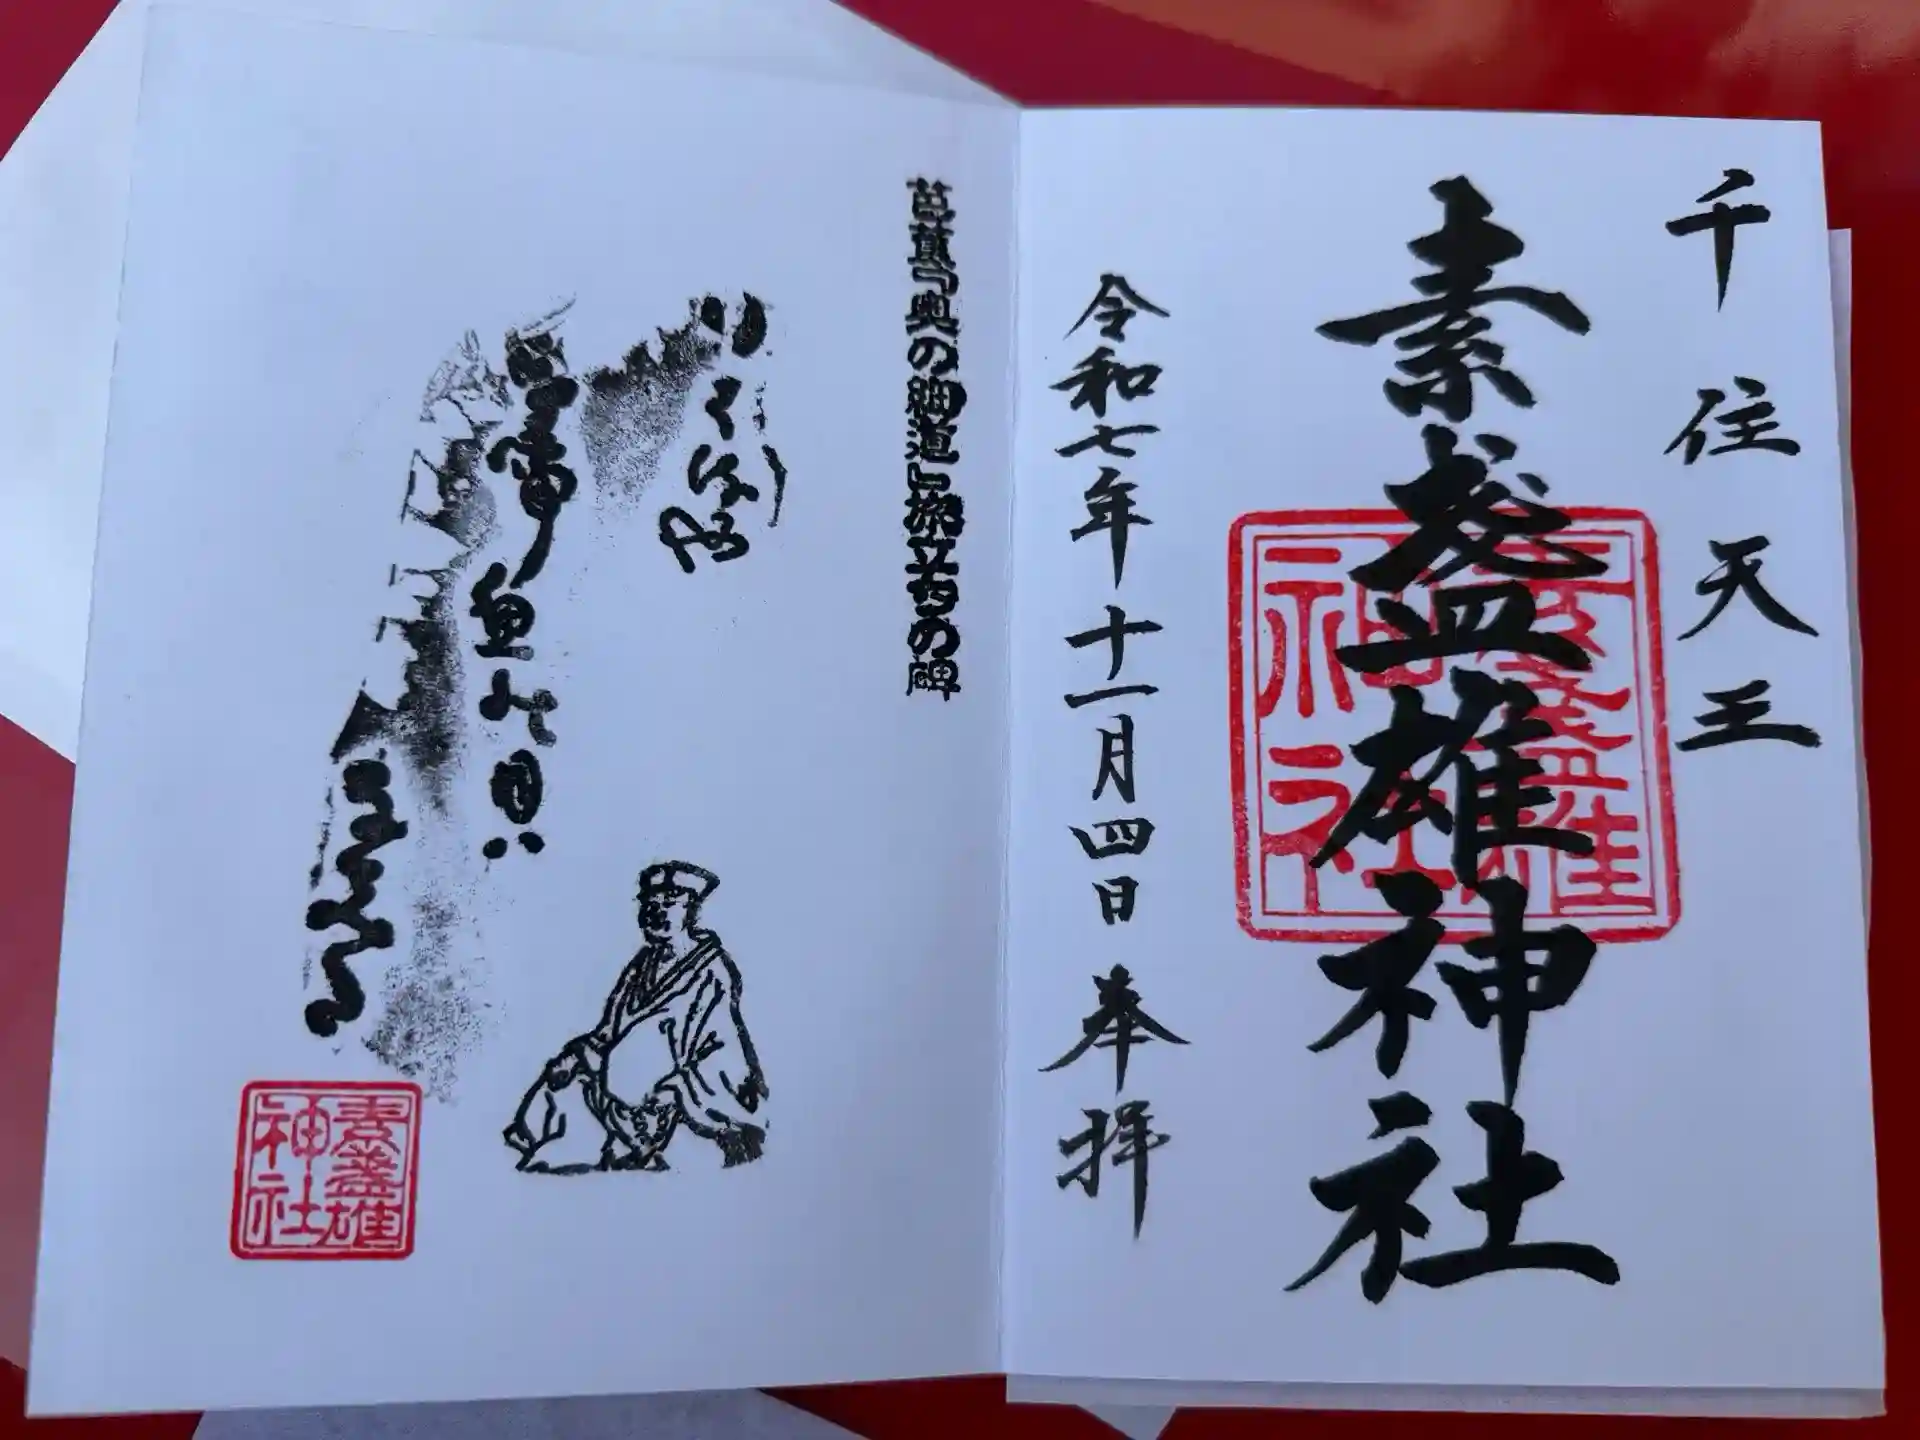 千住天王
素盞雄神社
素盞雄神社
令和七年十一月四日 奉拝
芭蕉『奥の細道』旅立ちの碑
行く春や
鳥啼魚の目ハ
素盞雄神社